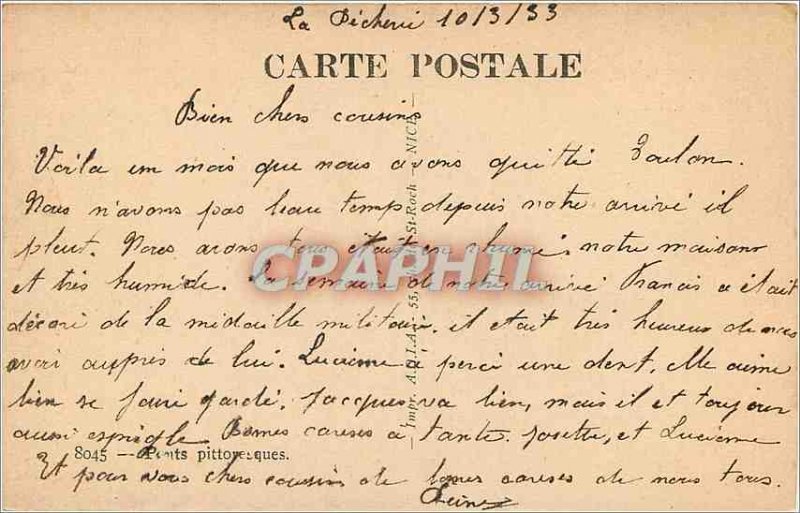 La Pêcherie 10/3/33
CARTE POSTALE
Bien chers cousins
Voila un mois que nous avons quitté Toulon.
Nous n'avons pas beau temp depuis notre arrivé il
pleut. Nous avons tous était en rhumé. notre maison
et très humide. La semaine de notre arrivé Francis a était
décoré de la médaille militaire. il était très heureux de nous
avoir auprès de lui. Lucienne à percé une dent, elle aime
bien se faire gardé. Jacques va bien, mais il et toujour
aussi espiègle. Bonnes careses a tante. Josette, et Lucienne
8045 — Ponts pittoresques.
Et pour vous chers cousins de bonnes careses de nous tous.
Reine
Impr. 55, St-Roch — NICE
CPAPHIL